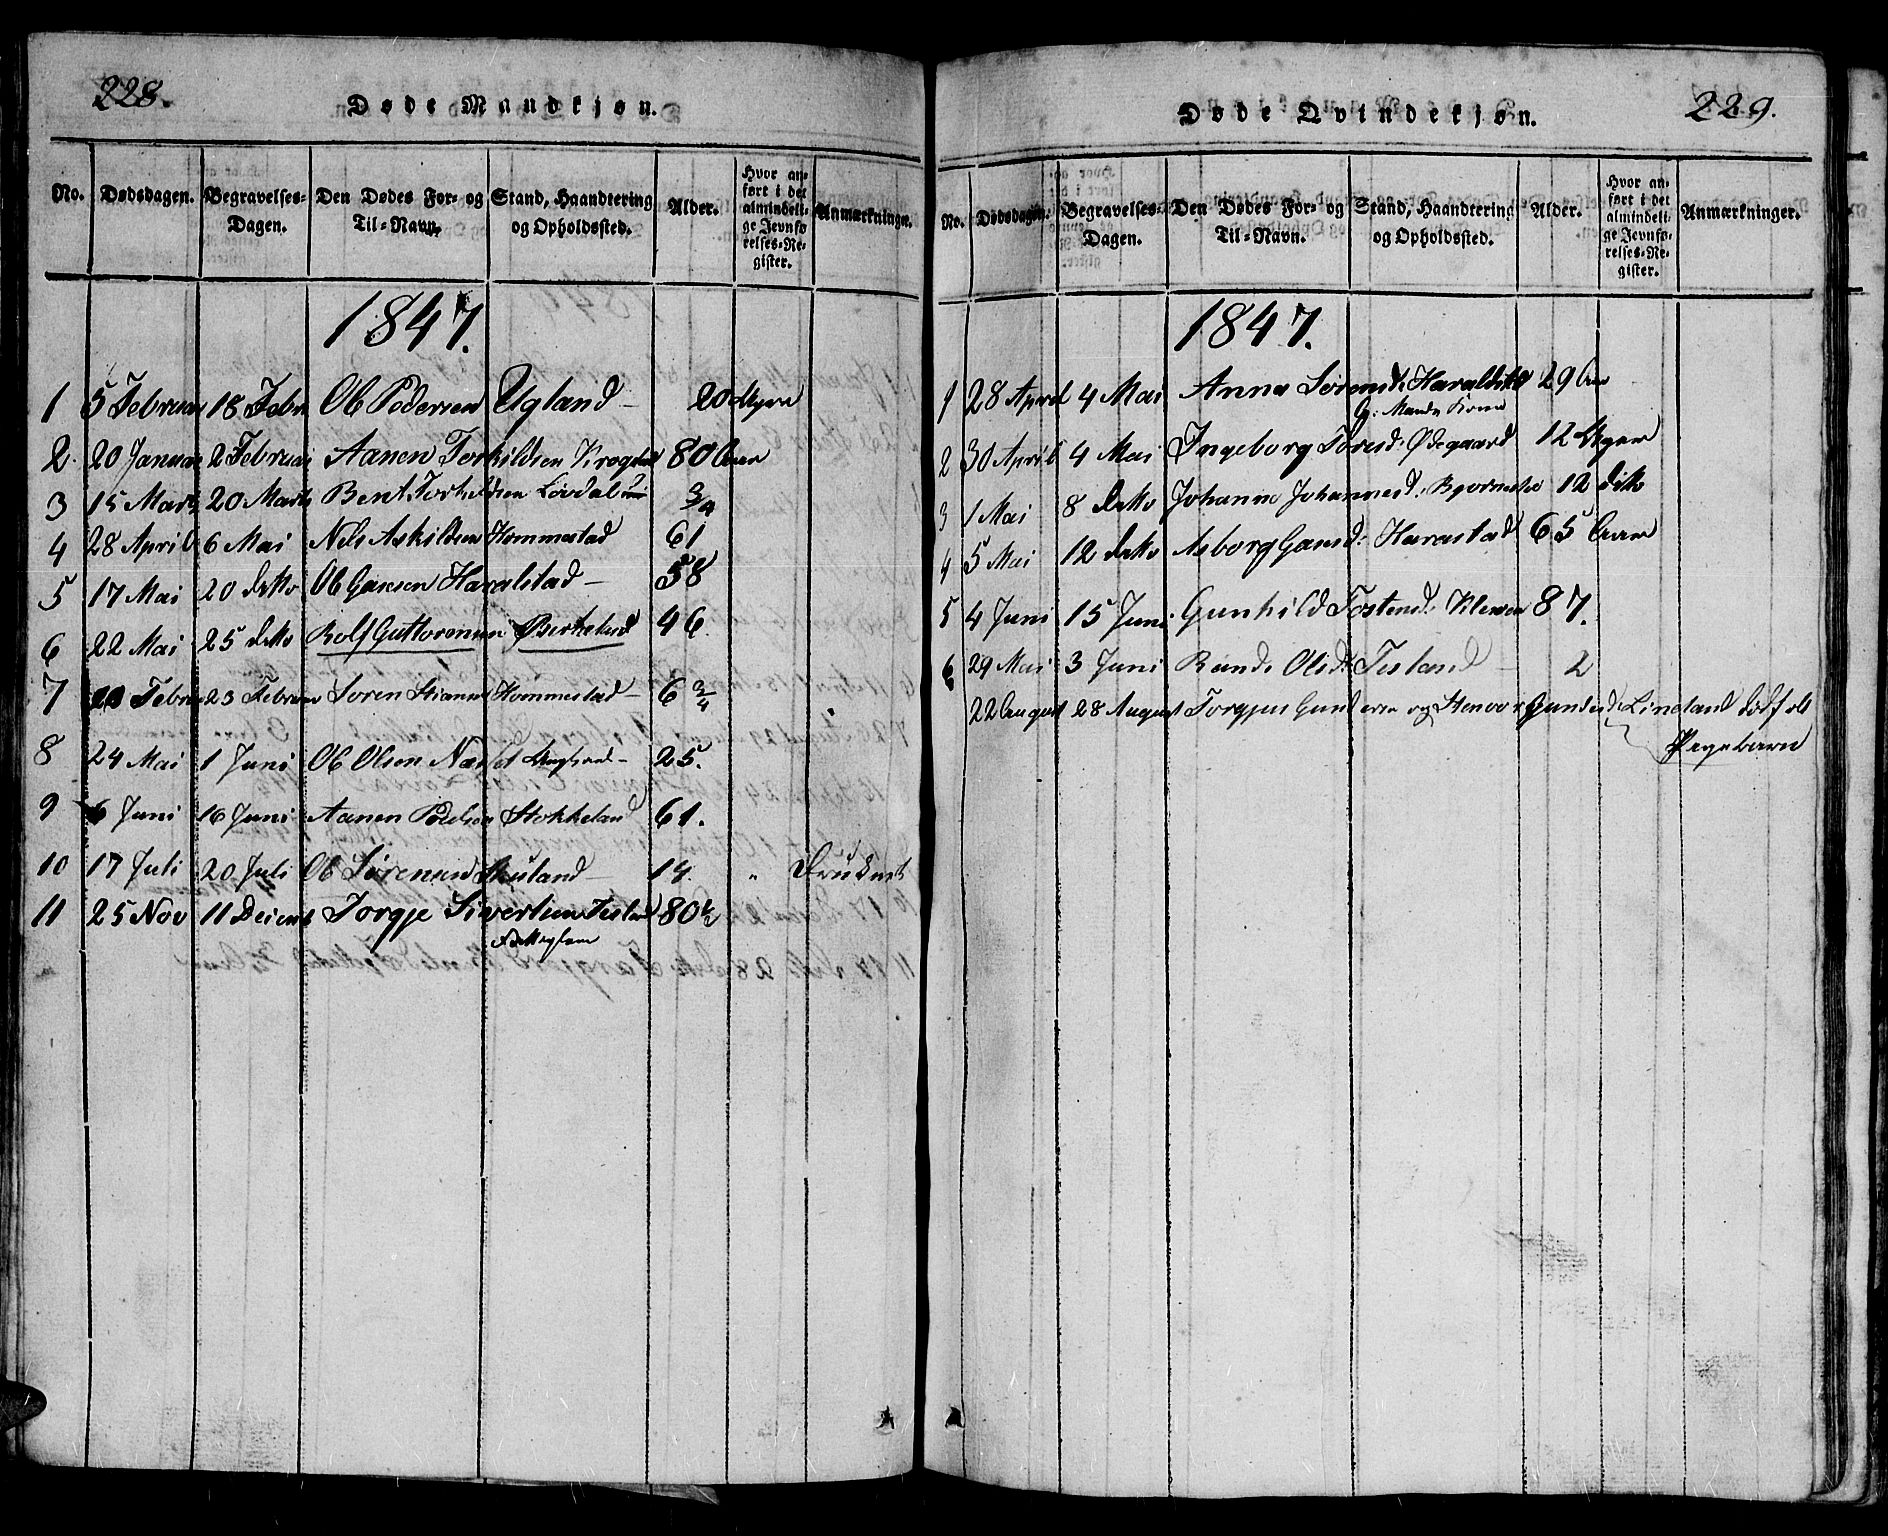 228.
Døde Mandkjøn.
No. Dødsdagen. Begravelses-Dagen. Den Dødes For- og Til-Navn. Stand, Haandtering og Opholdssted. Alder. Hvor anført i det almindelige Jevnførelses-Register. Anmærkninger.
1847.
1 5 Februar 18 Febr Ole Pedersen Ugland – 20 Uger
2. 20 Januar 2 Februar Aanen Torkildsen 80 Aar
3 15 Marts 20 Marts Bent Torkildsen Løvdal 3/4
4 28 April 6 Mai Nils Askildsen Hommestad 61
5 17 Mai 20 detto Ole Haralstad – 58
6 22 Mai 25 detto Rolf Guttormsen Birkeland 46.
7 Febru 23 Februar Søren Hommestad – 6 3/4
8 24 Mai 1 Juni Ole Olsen 25.
9 6 Juni 16 Juni Aanen Stokkeland 61.
10 17 Juli 20 Juli Ole Sørensen – 14. " Druknet
11 25 Nov 11 Decemb Torgje Sivertsen Tisland 80 1/2
229.
Døde Qvindekjøn.
No. Dødsdagen. Begravelses-Dagen. Den Dødes For- og Til-Navn. Stand, Haandtering og Opholdssted. Alder. Hvor anført i det almindelige Jevnførelses-Register. Anmærkninger.
1847.
1 28 April 4 Mai Anna Sørensd: Haralstad 29 Aar
G: Mands Kone
2 30 April 4 Mai Ingeborg Toresd: Ødegaard 12 Uger
3 1 Mai 8 detto Johanne Johannesd: 12 dito
4 5 Mai 12 detto Asborg Harastad 65 Aar
5 4 Juni 15 Juni Gunhild Tostensd: Kleven 87.
6 29 Mai 3 Juni Olsd: Tisland – 2
22 August 28 August Torgjus og Lineland dødfødt
Pigebarn